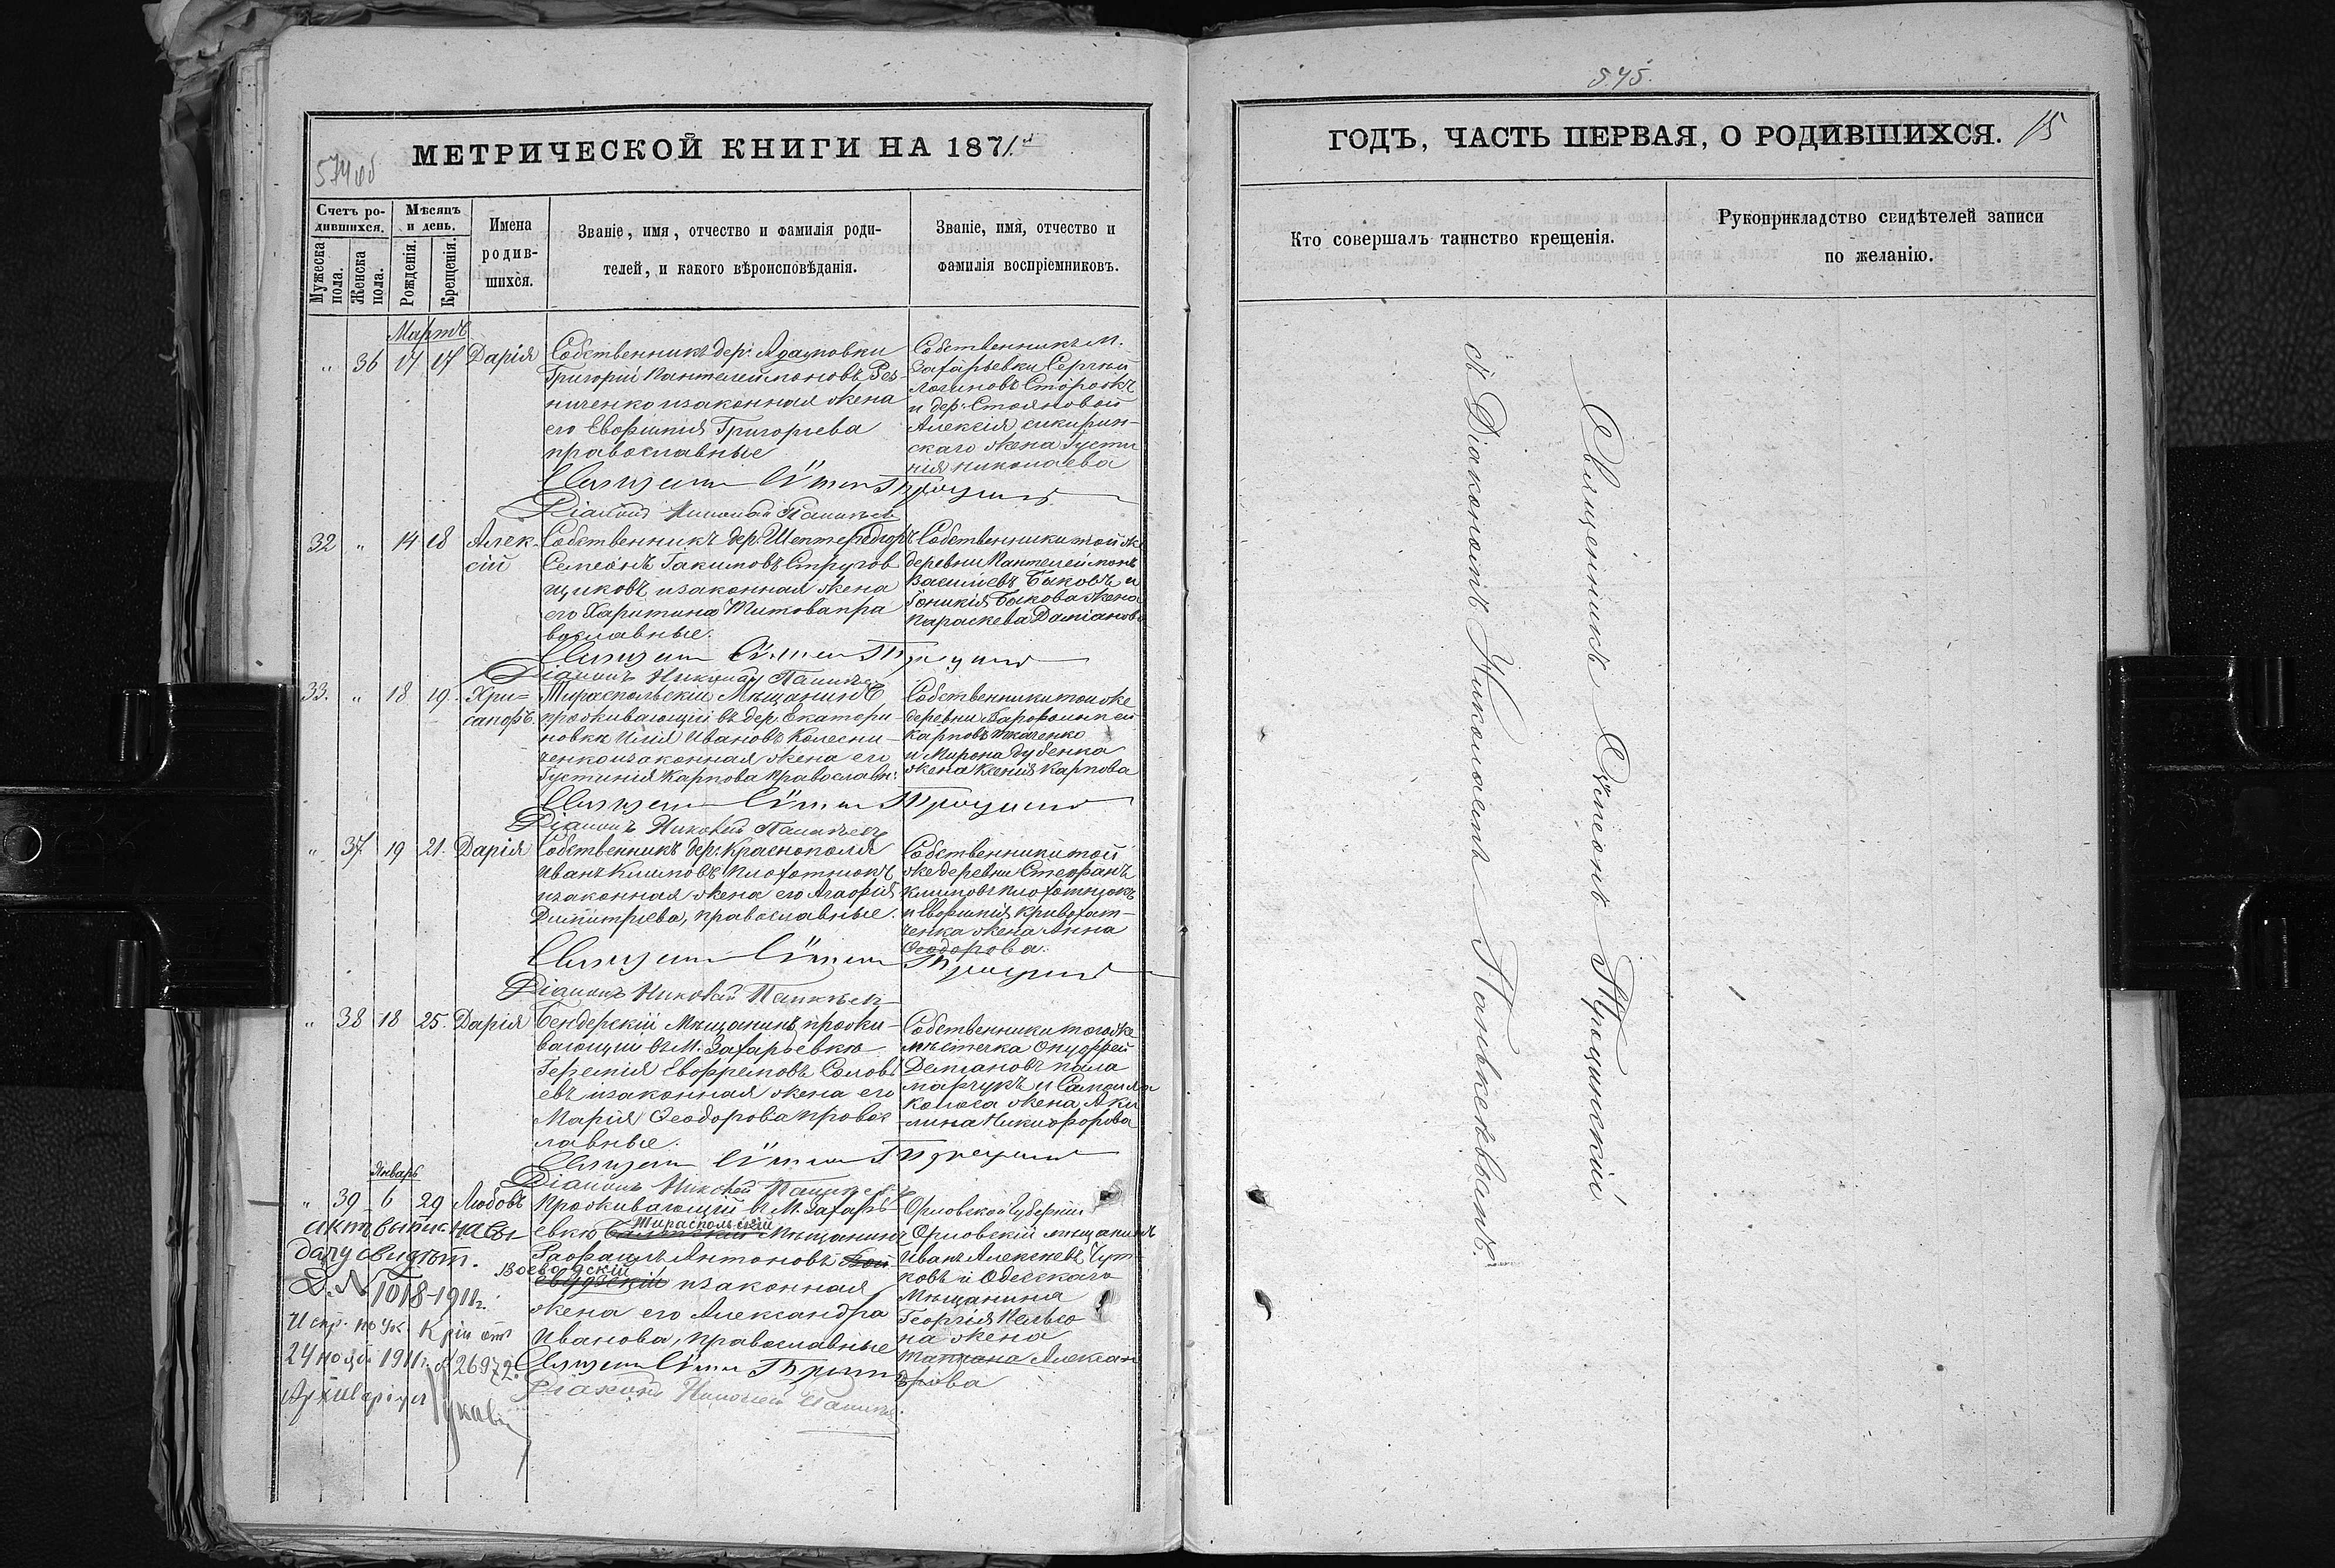 574 об
МЕТРИЧЕСКОЙ КНИГИ НА 1871.й
Счетъ ро-
дившихся.
Мужеска
пола.
Женска
пола.
Мѣсяцъ
и день.
Рожденія.
Крещенія.
Имена
родив-
шихся.
Званіе, имя, отчество и фамилія роди-
телей, и какого вѣроисповѣданія.
Званіе, имя, отчество и
фамилія воспріемниковъ.
Мартъ
" 36 17 17 Дарія
Собственникъ дер. Адамовки
Григорій Пантелеймоновъ Рез-
ниченко и законная жена
его Евфимія Григорьева
православные
Собственникъ М.
Захарьевки Сергій
Логиновъ Сторожъ
и дер. Стояновой
Алексія
скаго жена Густи
нія Николаева
Священникъ Сѵмеонъ Троцинскій
Діаконъ Николай Панькевъ
32 " 14 18 Алек-
сій
Собственникъ дер.
Семеонъ Іакимовъ Стругов
щиковъ и законная жена
его Харитина Титова пра
вославные.
Собственники той же
деревни Пантелеймонъ
Васильевъ Быковъ и
Іоникія Быкова жена
Параскева Даміанова
Священникъ Сѵмеонъ Троцинскій
Діаконъ Николай Панькевъ
33. " 18 19 Хри=
санфъ.
Тираспольскій Мѣщанинъ
проживающій въ дер. Екатери-
новкѣ Илія Ивановъ Колесни-
ченко и законная жена его
Густинія Карпова православн:
Собственники той же
деревни Варфоломей
Карповъ Ткаченко
и Мирона Дубенка
жена Ксенія Карпова
Священникъ Сѵмеонъ Троцинскій
Діаконъ Николай Панькевъ
" 37. 19 21. Дарія
Собственникъ дер. Краснополя
Иванъ Климовъ Плохотнюкъ
и законная жена его Агафія
Димитріева, православные.
Собственники той
же деревни Стефанъ
Климовъ Плохотнюкъ
и Евфимія Кривохат-
ченка жена Анна
Ѳеодорова.
Священникъ Сѵмеонъ Троцинскій
Діаконъ Николай Панькевъ
" 38 18 25. Дарія
Бендерскій Мѣщанинъ прожи-
вающій въ М. Захарьевкѣ
Іеремія Евфремовъ Соловь
евъ и законная жена его
Марія Ѳеодорова правос
лавные.
Собственники того же
мѣстечка Онуфрей
Деміановъ Пала
марчукъ и Самоила
Колоса жена Аки
лина Никифорова
Священникъ Сѵмеонъ Троцинскій
Діаконъ Николай Панькевъ
Январь
" 39 6 29 Любовь
Проживающій въ М. Захарь-
Тираспольскій
евкѣ Мѣщанинъ
Рафаилъ Антоновъ Вой
Воеводскій
и законная
жена его Александра
Иванова, православные
Орловской Губерніи
Орловскій мѣщанинъ
Иванъ Алексѣевъ Чут-
ковъ и Одесскаго
Мѣщанина
Георгія
на жена
Татіана Алексан
дрова
Священникъ Сѵмеонъ Троцинскій
Діаконъ Николай Панькевъ
актъ выписи на вы
дачу свидѣт.
Д. N 1018-1911г.
Испр. по ук. К-ріи отъ
24 нояб. 1911г. N 26972.
Архиваріусъ
545.
ГОДЪ, ЧАСТЬ ПЕРВАЯ, О РОДИВШИХСЯ.
15
Кто совершалъ таинство крещенія.
Рукоприкладство свидѣтелей записи
по желанію.
Священникъ Сѵмеонъ Троцинскій
съ Діакономъ Николаемъ Панькевычемъ.